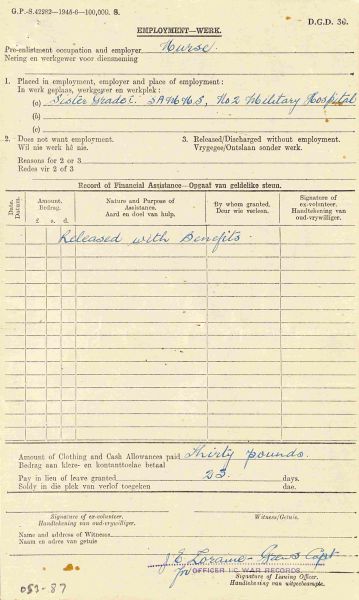 G.P.-S.42282—1945-6—100,000. S.
D.G.D. 36.
EMPLOYMENT—WERK.
Pre-enlistment occupation and employer Nurse.
Nering en werkgewer voor diensneming
1. Placed in employment, employer and place of employment:
In werk geplaas, werkgewer en werkplek:
(a) Sister Grade I. SAMNS, No 2 Military Hospital
(b)
(c)
2. Does not want employment. 3. Released/Discharged without employment.
Wil nie werk hê nie. Vrygegee/Ontslaan sonder werk.
Reasons for 2 or 3
Redes vir 2 of 3
Record of Financial Assistance—Opgaaf van geldelike steun.
Date. Datum.
Amount. Bedrag.
£ s. d.
Nature and Purpose of Assistance.
Aard en doel van hulp.
By whom granted.
Deur wie verleen.
Signature of ex-volunteer.
Handtekening van oud-vrywilliger.
Released with Benefits.
Amount of Clothing and Cash Allowances paid Thirty pounds.
Bedrag aan klere- en kontanttoelae betaal
Pay in lieu of leave granted 23. days.
Soldy in die plek van verlof toegeken dae.
Signature of ex-volunteer. Witness/Getuie.
Handtekening van oud-vrywilliger.
Name and address of Witness.
Naam en adres van getuie
J E Loraine- Capt
for OFFICER I.C. WAR RECORDS.
Signature of Issuing Officer.
Handtekening van uitgeebeampte.
053-87